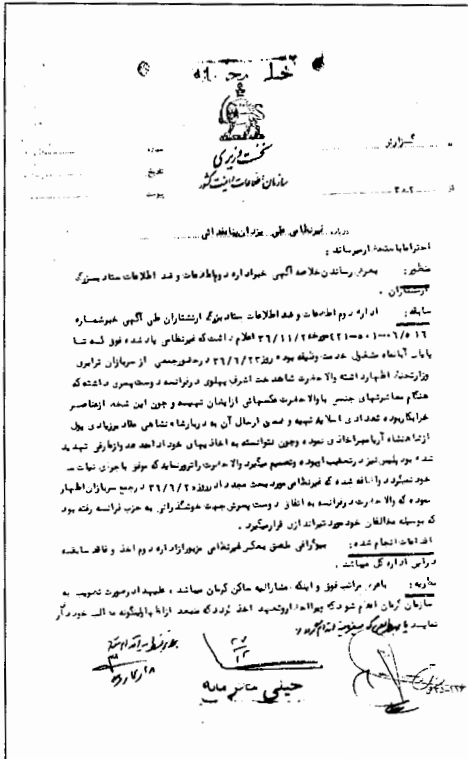 خیلی محرمانه
نخست وزیری
سازمان اطلاعات و امنیت کشور
گزارش
شماره
تاریخ
پیوست
از ۳۸۲
درباره غیرنظامی علی یزدان‌پناه فدائی
احتراما باستحضار میرساند :
منظور : بعرض رساندن خلاصه آگهی خبر اداره دوم اطلاعات و ضد اطلاعات ستاد بزرگ
ارتشتاران .
سابقه : اداره دوم اطلاعات و ضد اطلاعات ستاد بزرگ ارتشتاران طی آگهی خبر شماره
اعلام داشت که غیرنظامی یاد شده فوق که تا
پایان آبانماه مشغول خدمت وظیفه بوده روز ۳۶/۶/۲۳ در حضور جمعی از سربازان ترابری
وزارتخانه اظهار داشته والاحضرت شاهدخت اشرف پهلوی در فرانسه دوست پسری داشته که
هنگام معاشرتهای جنسی با والاحضرت عکسهائی از ایشان تهیه و چون این شخص از عناصر
خرابکار بوده تعدادی اسلاید تهیه و ضمن ارسال آن به دربار شاهنشاهی مقادیر زیادی پول
از شاهنشاه آریامهر اخاذی نموده و چون نتوانسته به اخاذیهای خود ادامه دهد و از طرفی تهدید
شده بود پلیس نیز در تعقیب او بوده و تصمیم میگیرد والاحضرت را ترور نماید که موفق با جرای نیات
خود نمیگردد و اضافه شده که غیرنظامی مورد بحث مجددا در روز ۳۶/۶/۲ در جمع سربازان اظهار
نموده که والاحضرت در فرانسه به اتفاق دوست پسرش جهت خوشگذرانی به حزب فرانسه رفته بود
که بوسیله مخالفان خود مورد تیراندازی قرار میگیرد .
اقدامات انجام شده : بیوگرافی ملصق بعکس غیرنظامی مزبور از اداره دوم اخذ و فاقد سابقه
در این اداره کل میباشد .
نظریه : باعرض مراتب فوق و اینکه مشارالیه ساکن کرمان میباشد ، علیهذا در صورت تصویب به
سازمان کرمان اعلام شود که ویرا احضار و تعهد اخذ گردد که منبعد از اظهار اینگونه مطالب خودداری
نماید